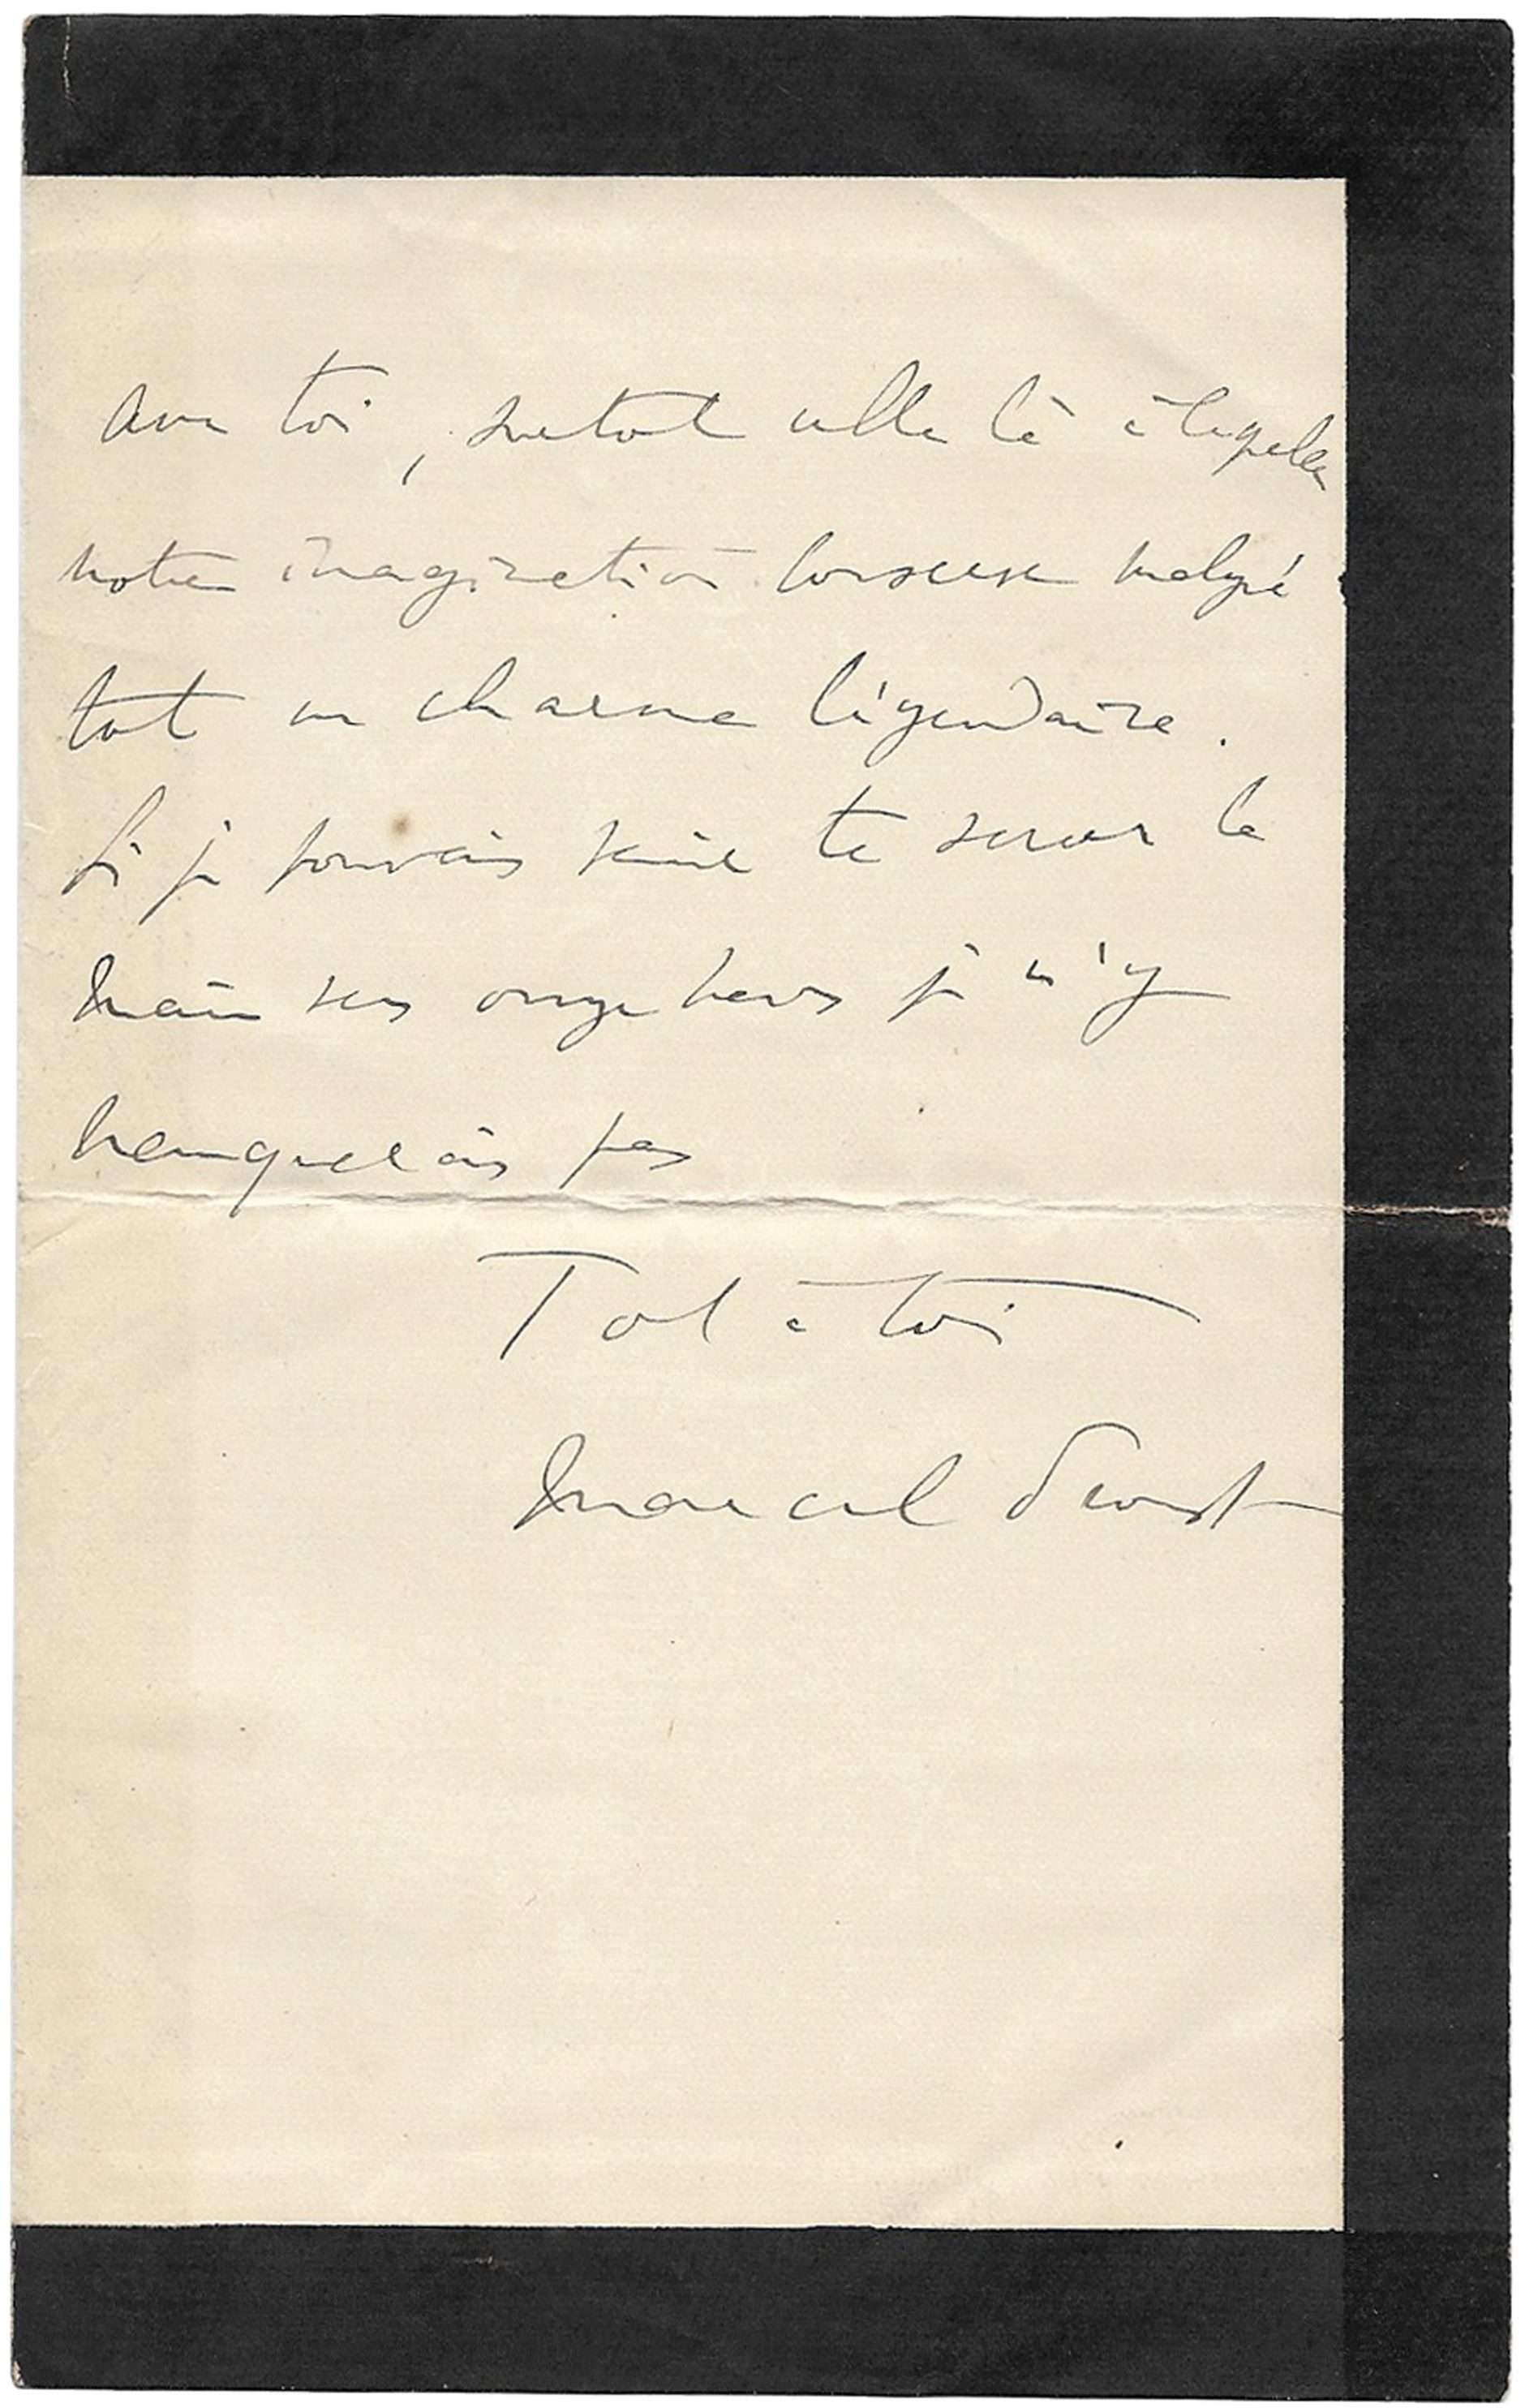 avec toi, surtout celle là à laquelle
notre imagination conserve malgré
tout un charme légendaire.
Si je pouvais venir te serrer la
main vers onze heures je n'y
manquerais pas
Tout à toi
Marcel Proust